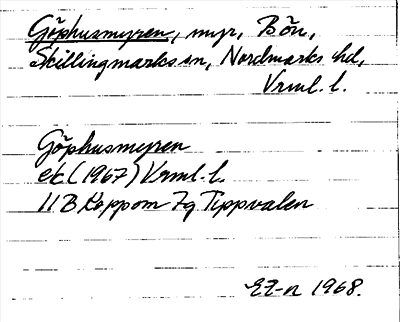 Göphusmyren, myr, Bön,
Skillingmarks sn, Nordmarks hd,
Vrml. l.
Göphusmyren
ek (1967) Vrml. l.
11B Koppom 7g Tippvalen
EL-n 1968.